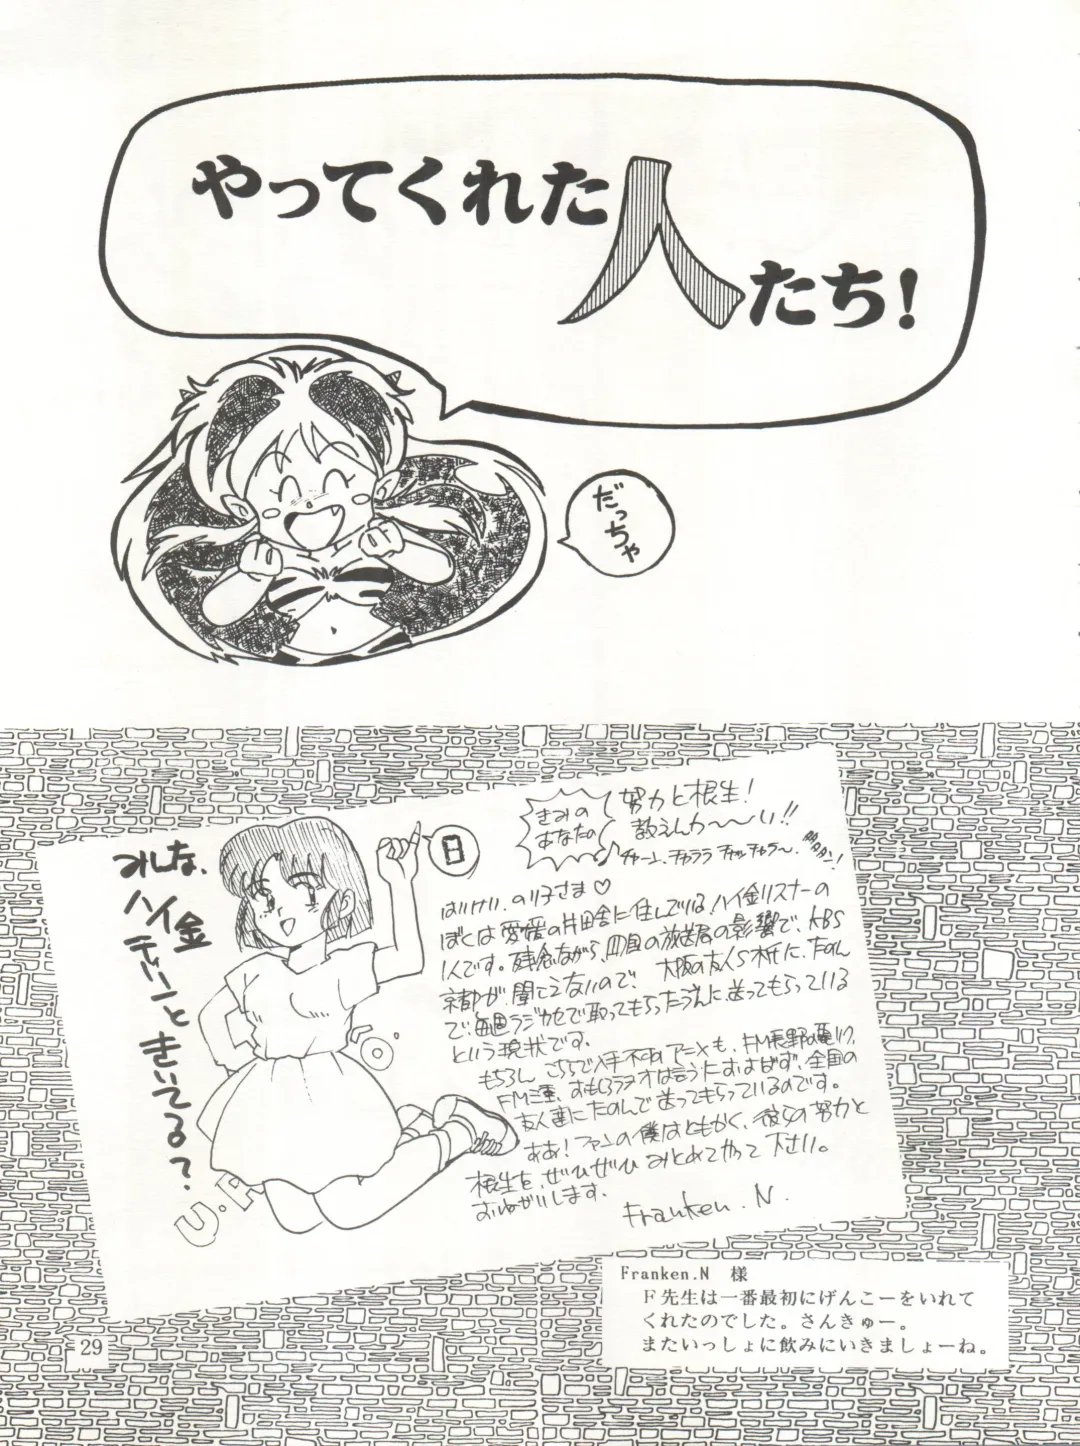 やってくれた人たち!
だっちゃ
みんな、
ハイ金
ティーンと
きいてる?
日
きみの
あなたの
努力と根生!
教えんか〜〜い!!
チャーン、チャララ チャッチャラ〜、
はいけい、のり子さま♡
ぼくは愛媛の片田舎に住んでいる、ハイ金リスナーの
1人です。残念ながら、四国の放送局の影響で、KBS
京都が、聞こえないので、大阪の友人S木に、たのん
で、毎週ラジカセで取ってもらったうえに送ってもらっている
という現状です。
もちろん、こちらで入手不可のアニメも、FM長野の
FM三重、おもしろラジオは言うにおよばず、全国の
友人達にたのんで送ってもらっているのです。
ああ!ファンの僕はともかく、彼らの努力と
根生を、ぜひぜひみとめてやって下さい。
おねがいします。
Franken.N.
Franken.N 様
F先生は一番最初にげんこーをいれて
くれたのでした。さんきゅー。
またいっしょに飲みにいきましょーね。
29